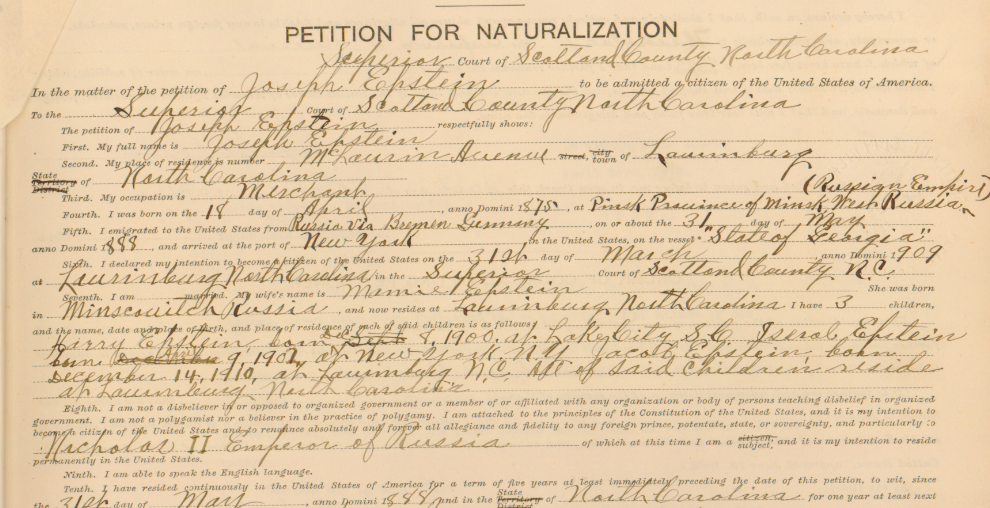 PETITION FOR NATURALIZATION
Superior Court of Scotland County North Carolina
In the matter of the petition of Joseph Epstein to be admitted a citizen of the United States of America.
To the Superior Court of Scotland County North Carolina
The petition of Joseph Epstein respectfully shows:
First. My full name is Joseph Epstein
Second. My place of residence is number McLaurin Avenue street, city town of Laurinburg
State Territory District of North Carolina
Third. My occupation is Merchant
(Russian Empire)
Fourth. I was born on the 18 day of April, anno Domini 1875, at Pinsk Province of Minsk West Russia
Fifth. I emigrated to the United States from Russia via Bremen Germany on or about the 31 day of May
anno Domini 1888, and arrived at the port of New York in the United States, on the vessel "State of Georgia"
Sixth. I declared my intention to become a citizen of the United States on the 31st day of March, anno Domini 1909
at Laurinburg North Carolina in the Superior Court of Scotland County N.C.
Seventh. I am married. My wife's name is Mamie Epstein She was born
in Minscovitch Russia, and now resides at Laurinburg North Carolina I have 3 children,
and the name, date and place of birth, and place of residence of each of said children is as follows:
Harry Epstein, born Sept 8, 1900, at Lake City S.C. Iseral Epstein
born December 9, 1907, at New York N.Y. Jacob Epstein, born
December 14, 1910, at Laurinburg N.C. All of said children reside
at Laurinburg North Carolina
Eighth. I am not a disbeliever in or opposed to organized government or a member of or affiliated with any organization or body of persons teaching disbelief in organized
government. I am not a polygamist nor a believer in the practice of polygamy. I am attached to the principles of the Constitution of the United States, and it is my intention to
become a citizen of the United States and to renounce absolutely and forever all allegiance and fidelity to any foreign prince, potentate, state, or sovereignty, and particularly to
Nicholas II Emperor of Russia of which at this time I am a citizen, subject, and it is my intention to reside
permanently in the United States.
Ninth. I am able to speak the English language.
Tenth. I have resided continuously in the United States of America for a term of five years at least immediately preceding the date of this petition, to wit, since
the 31st day of May, anno Domini 1888, and in the State Territory District of North Carolina for one year at least next